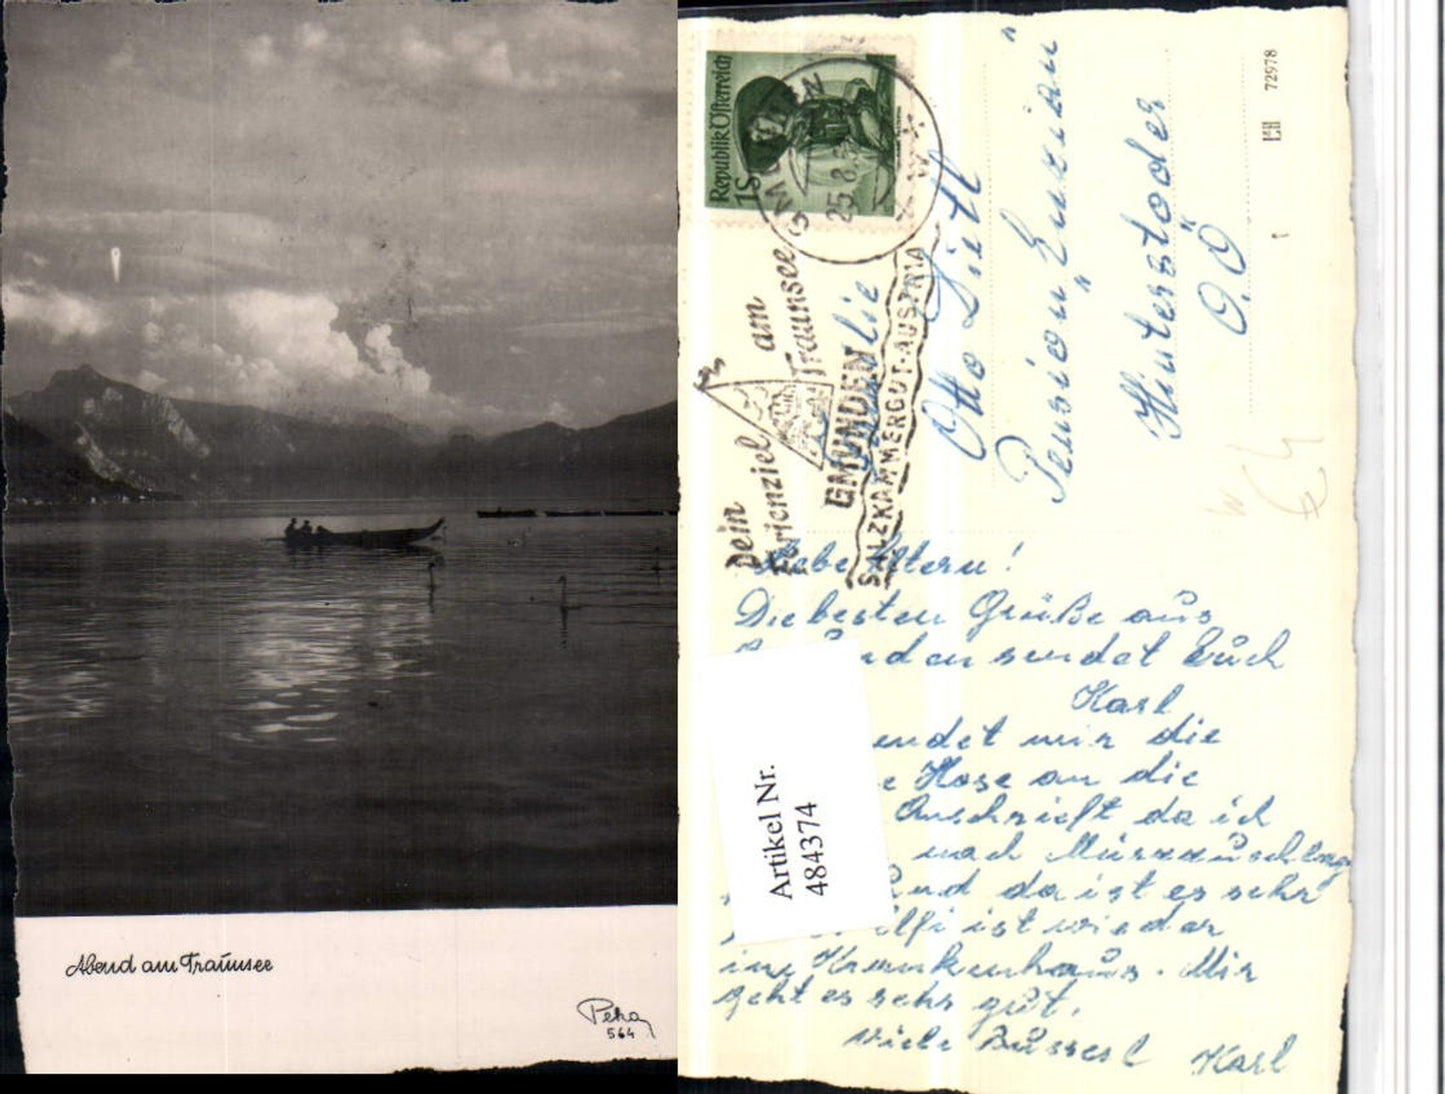 Abend am Traunsee
Peka
564
Republik Österreich
1 S
GMUNDEN
25.8.
Dein
Ferienziel
am
Traunsee
GMUNDEN
SALZKAMMERGUT-AUSTRIA
Otto Dietl
Pension "Enzian"
Hinterstoder
O.Ö
72978
Artikel Nr.
484374
Liebe Eltern!
Die besten Grüße aus
sendet Euch
Karl
endet mir die
Hose an die
Anschrift da ich
nach Mürzzuschlag
und da ist es sehr
Elfi ist wieder
im Krankenhaus. Mir
geht es sehr gut.
Viele Busserl Karl